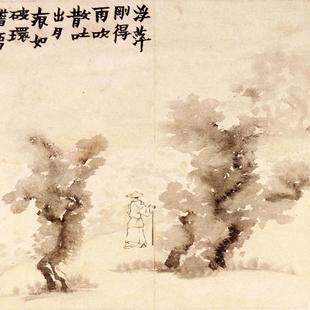 浮萍
剛得
雨吹
散吐
出月
痕如
破環